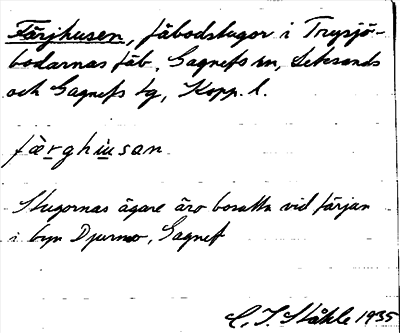 Färjhusen, fäbodstugor i Trysjö-
bodarnas fäb., Gagnefs sn, Leksands
och Gagnefs tg, Kopp. l.
færghiusan
Stugornas ägare äro bosatta vid färjan
i byn Djurmo, Gagnef
C. I. Ståhle 1935